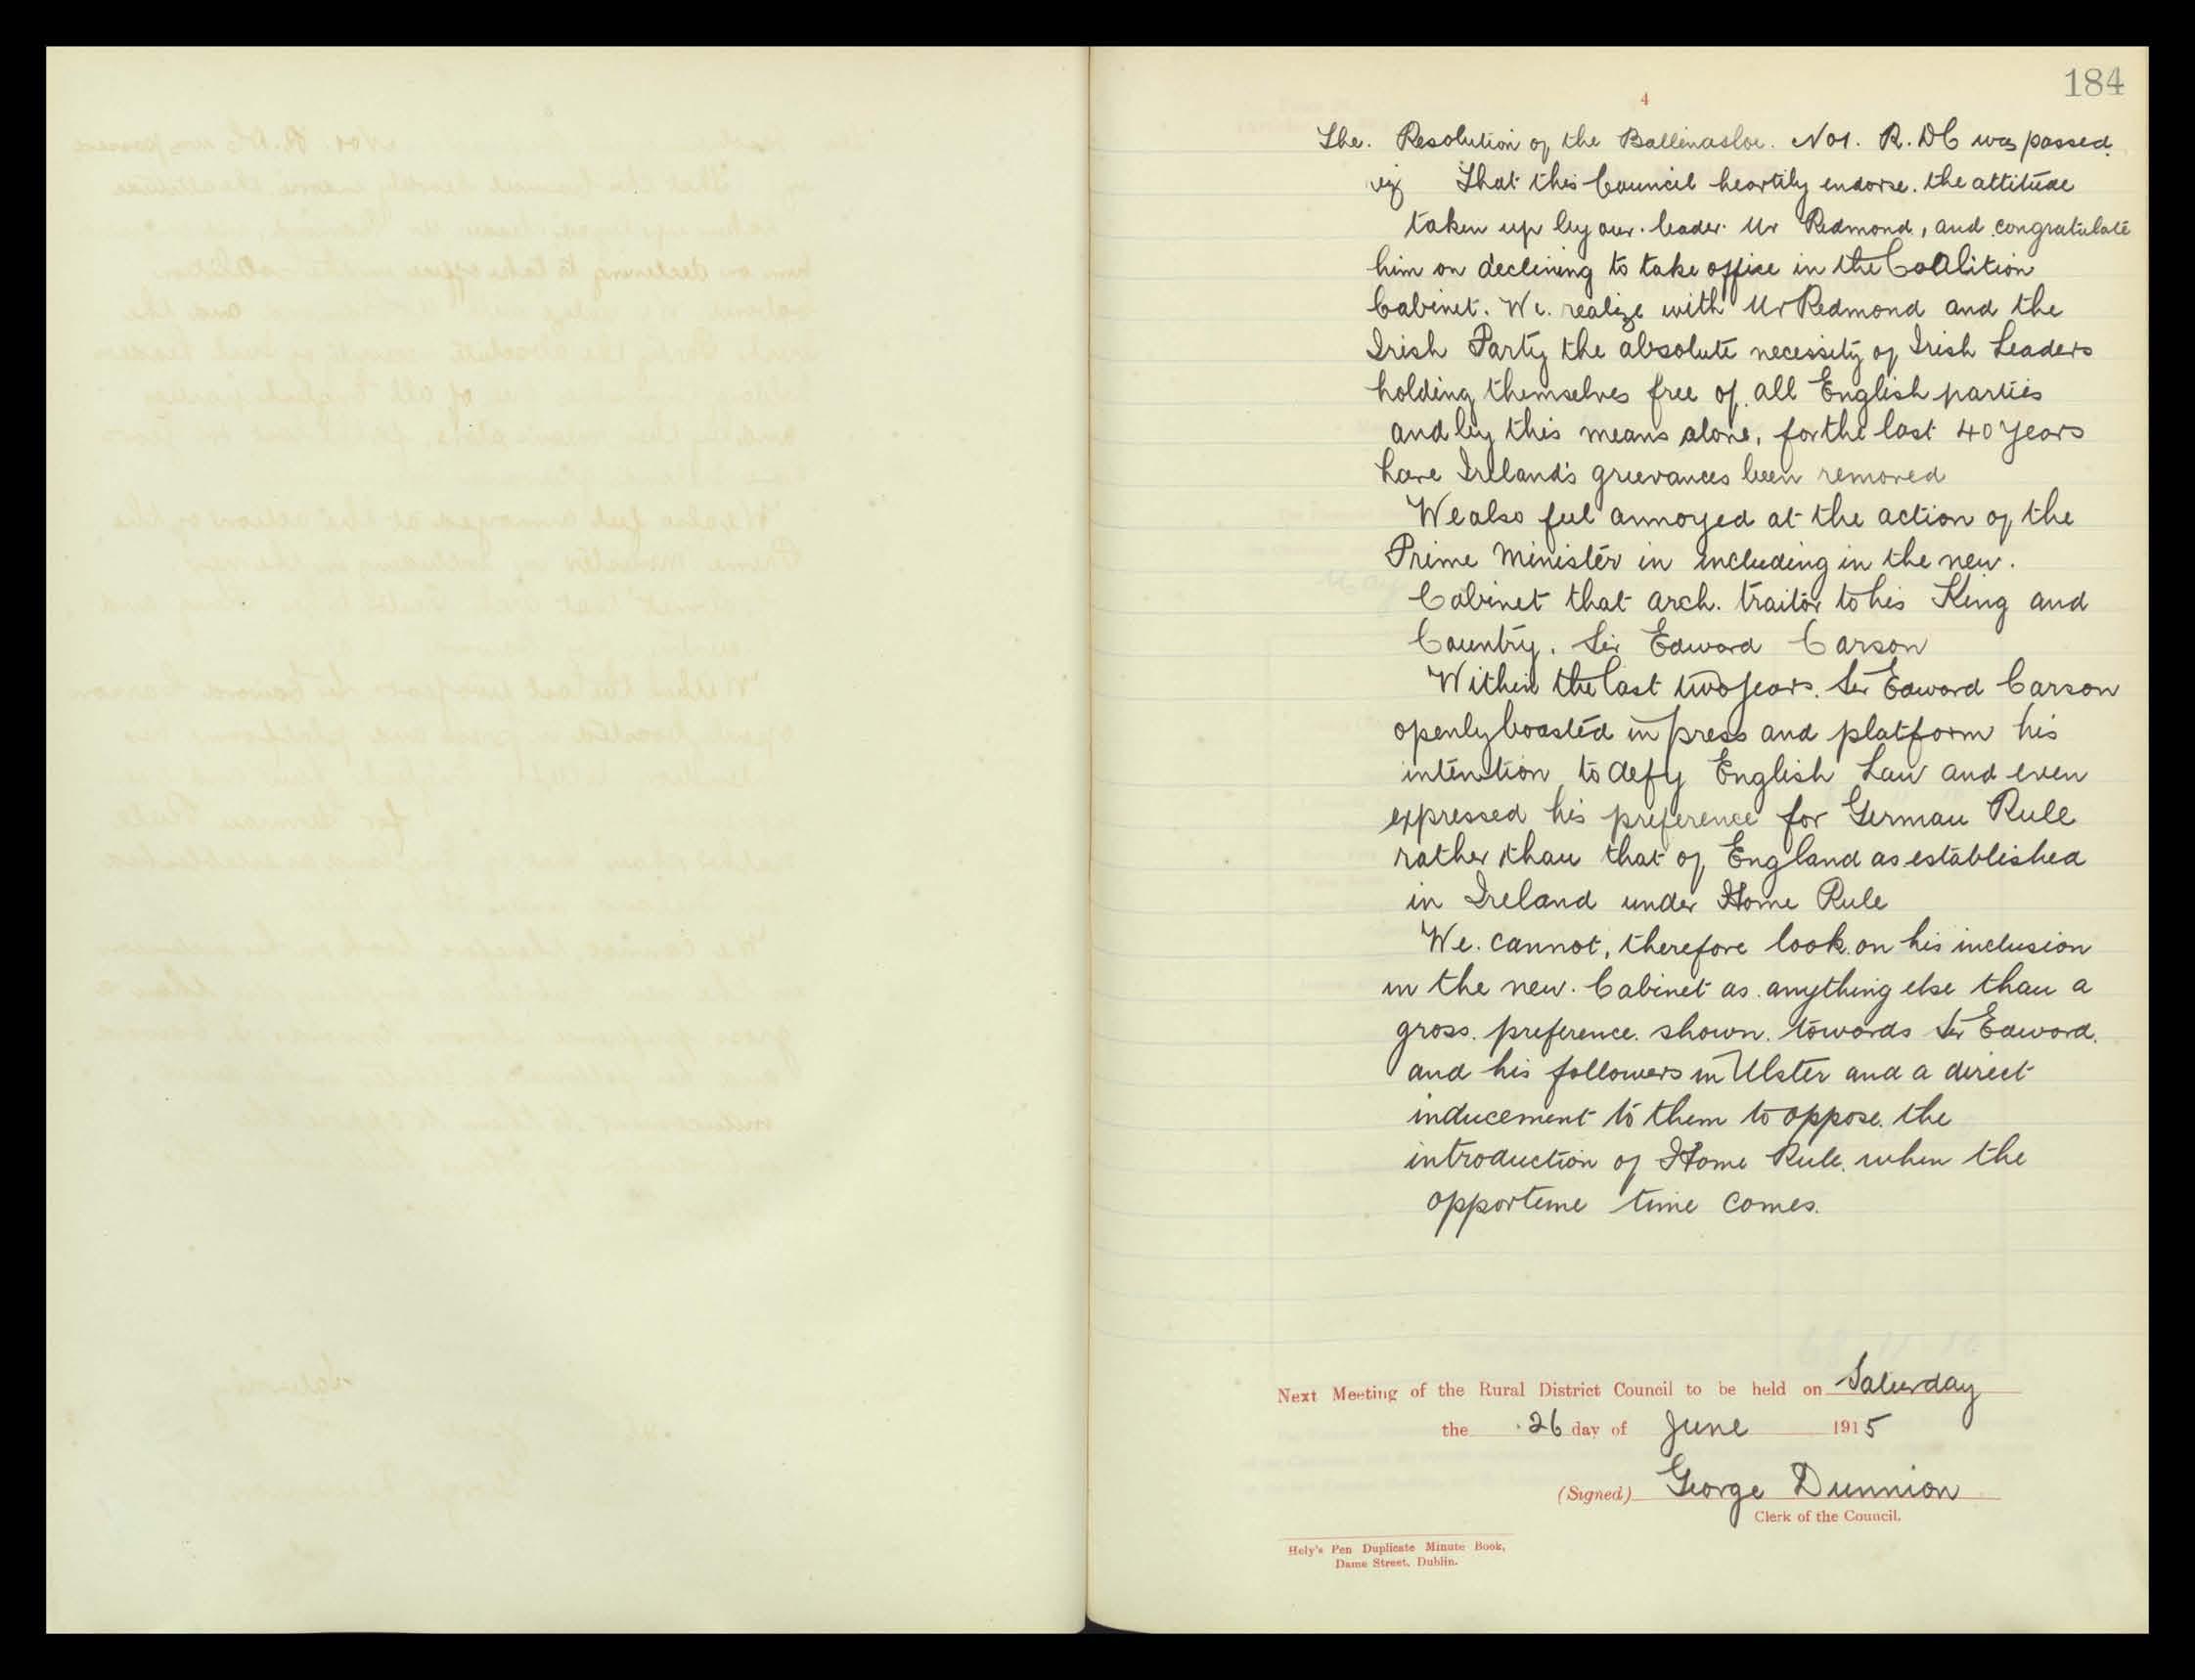 184
4
The. Resolution of the Ballinasloe. No1. R. DC was passed.
viz That this Council heartily endorse. the attitude
taken up by our. leader. Mr Redmond, and congratulate
him on declining to take office in the Coalition
Cabinet. We. realize with Mr Redmond and the
Irish Party the absolute necessity of Irish Leaders
holding themselves free of. all English parties
and by this means alone, for the last 40 years
have Ireland's grievances been removed
We also feel annoyed at the action of the
Prime Minister in including in the new.
Cabinet that arch. traitor to his King and
Country. Sir Edward Carson
Within the last two years. Sir Edward Carson
openly boasted in press and platform his
intention to defy English Law and even
expressed his preference for German Rule
rather than that of England as established
in Ireland under Home Rule
We. cannot, therefore look on his inclusion
in the new. Cabinet as. anything else than a
gross. preference. shown. towards Sir Edward.
and his followers in Ulster and a direct
inducement to them to oppose. the
introduction of Home Rule. when the
opportune time comes.
Next Meeting of the Rural District Council to be held on Saturday
the 26 day of June 1915
(Signed) George Dunnion
Clerk of the Council.
Hely's Pen Duplicate Minute Book,
Dame Street, Dublin.